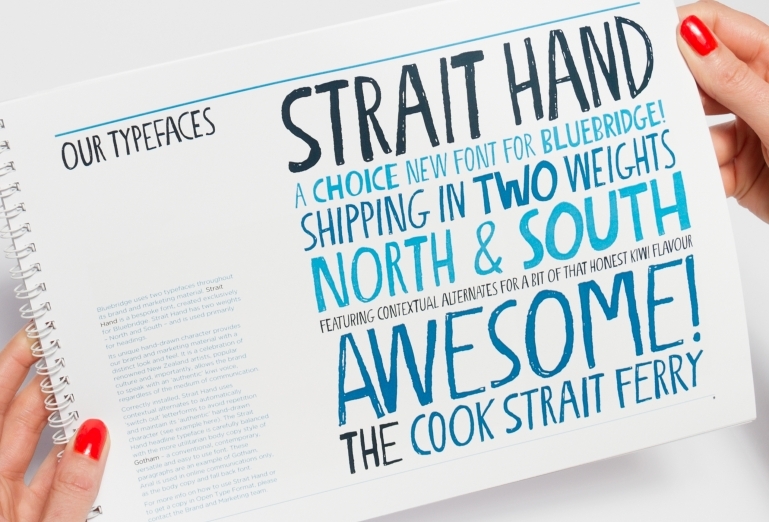 OUR TYPEFACES
Bluebridge uses two typefaces throughout
its brand and marketing material. Strait
Hand is a bespoke font, created exclusively
for Bluebridge. Strait Hand has two weights
– North and South – and is used primarily
for headings.
Its unique hand-drawn character provides
our brand and marketing material with a
distinct look and feel. It is a celebration of
renowned New Zealand artists, popular
culture and, importantly, allows the brand
to speak with an 'authentic' kiwi voice,
regardless of the medium of communication.
Correctly installed, Strait Hand uses
contextual alternates to automatically
switch out letterforms to avoid repetition
and maintain its 'authentic' hand-drawn
character (see example here). The Strait
Hand headline typeface is carefully balanced
with the more utilitarian body copy style of
Gotham – a conventional, contemporary,
versatile and easy to use font. These
paragraphs are an example of Gotham.
Arial is used in online communications only,
as the body copy and fall back font.
For more info on how to use Strait Hand or
to get a copy in Open Type Format, please
contact the Brand and Marketing team.
STRAIT HAND
A CHOICE NEW FONT FOR BLUEBRIDGE!
SHIPPING IN TWO WEIGHTS
NORTH & SOUTH
FEATURING CONTEXTUAL ALTERNATES FOR A BIT OF THAT HONEST KIWI FLAVOUR
AWESOME!
THE COOK STRAIT FERRY